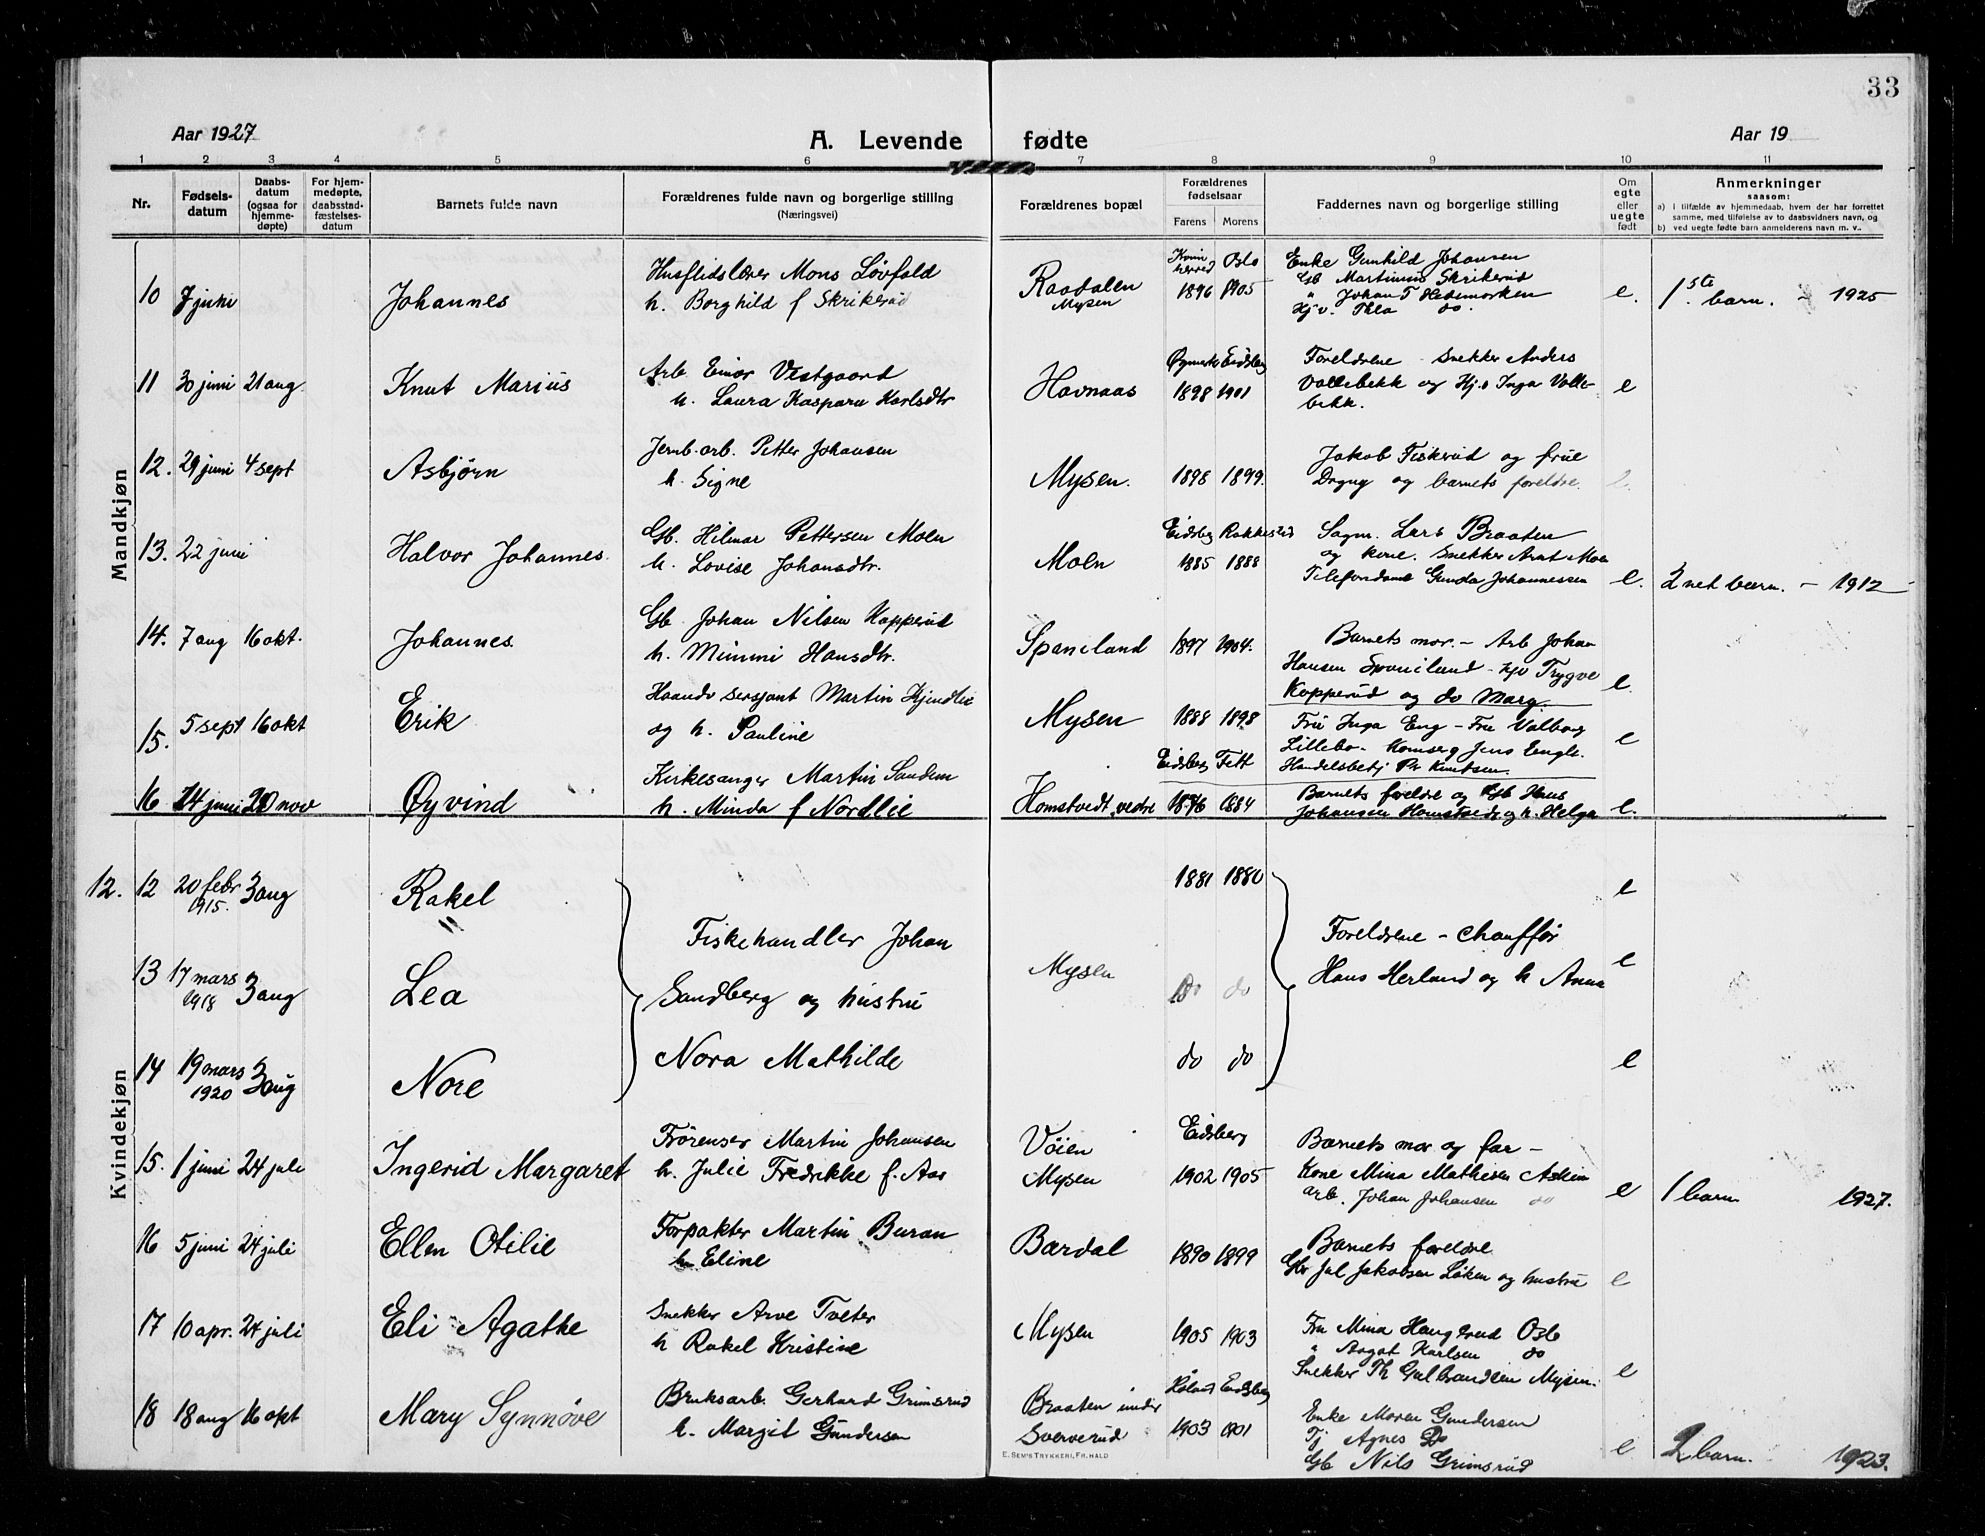 33
Aar 1927 A. Levende fødte Aar 19
1 2 3 4 5 6 7 8 9 10 11
Nr. Fødsels-datum Daabs-datum (ogsaa for hjemme-døpte) For hjem-medøpte, daabsstad-fæstelses-datum Barnets fulde navn Forældrenes fulde navn og borgerlige stilling (Næringsvei) Forældrenes bopæl Forældrenes fødselsaar Farens Morens Faddernes navn og borgerlige stilling Om egte eller uegte født Anmerkninger saasom: a) i tilfælde av hjemmedaab, hvem der har forrettet samme, med tilføielse av to daabsvidners navn, og b) ved uegte fødte barn anmelderens navn m. v..
Mandkjøn
10 7 juni Johannes Husflidslærer Mons Løvfald
h. Borghild f Skrikerud
Raadalen
Mysen
Oslo
1896 1905
Enke Gunhild Johansen
Gb Martinius Skrikerud
" Johan T Hedemarken
Hjv. Thea do.
e. 1ste barn. - 1925
11 30 juni 21 aug Knut Marius Arb. Einar Vestgaard
h. Laura Kaspara Karlsdtr
Havnaas
Øymark Eidsberg
1898 1901
Foreldrene - Snekker Anders
Vollebekk og Hj.v Inga Volle-
bekk.
e
12. 29 juni 4 sept Asbjørn Jernb.arb. Petter Johansen
h. Signe
Mysen. 1898 1899.
Jakob Fiskerud og frue
Dagny og barnets foreldre.
13. 22 juni Halvor Johannes. Gb. Hilmar Pettersen Moen
h. Lovise Johansdtr.
Moen
Eidsberg Rakkestad
1885 1888
Sagm. Lars Braaten
og kone. Snekker Arnt Moen
Telefondame Gunda Johannessen
e. 2net barn. - 1912
14. 7 aug 16 okt. Johannes. Gb. Johan Nilsen Kopperud
h. Mimmi Hansdtr.
Spaniland 1897 1904.
Barnets mor. - Arb Johan
Hansen Spaniland - hjv Trygve
Kopperud og do Marg.
e.
15. 5 sept 16 okt Erik Haandv sersjant Martin Kjindlie
og h. Pauline
Mysen 1888 1898
Fru Inga Eng - Fru Valborg
Lillebo - Jens Engh.
Handelsbetj Per Knutsen.
e
16 14 juni 20 nov Øyvind Kirkesanger Martin Sandem
h. Minda f Nordlie
Homstvedt, vestre
Eidsberg Fett
1876 1884
Barnets foreldre og Gb Hans
Johansen Homstvedt og h. Helga
e.
Kvindekjøn
12. 12 20 febr 1915. 3 aug Rakel 1881 1880 e
13 17 mars 1918 3 aug Lea
Fiskehandler Johan
Sandberg og hustru
Nora Mathilde
Mysen do do
Foreldrene - Chauffør
Hans Herland og h Anna
e
14 19 mars 1920 3 aug Nore do do e
15. 1 juni 24 juli Ingerid Margaret Martin Johansen
h. Julie Fredrikke f. Aas
Vøien
Mysen
Eidsberg
1902 1905
Barnets mor og far -
Kone Mina Mathisen Askim
arb. Johan Johansen do
e 1 barn 1927.
16 5 juni 24 juli Ellen Otilie Forpakter Martin Buran
h. Eline
Bærdal 1890 1899
Barnets foreldre
Gbr Jul Jakobsen Løken og hustru
e
17 10 apr. 24 juli Eli Agathe Snekker Arve Tveter
h Rakel Kristine
Mysen 1905 1903
Fru Mina Haugerud Oslo
" Aagot Karlsen do
Snekker Th Gulbrandsen Mysen.
e
18 18 aug 16 okt Mary Synnøve Bruksarb. Gerhard Grimsrud
h. Margit Gundersen
Braaten under
Sververud
Høland Eidsberg
1903 1901
Enke Maren Gundersen
Tj Agnes Do
Gb Nils Grimsrud
e 2 barn. 1923.
E. SEM'S TRYKKERI, FR.HALD